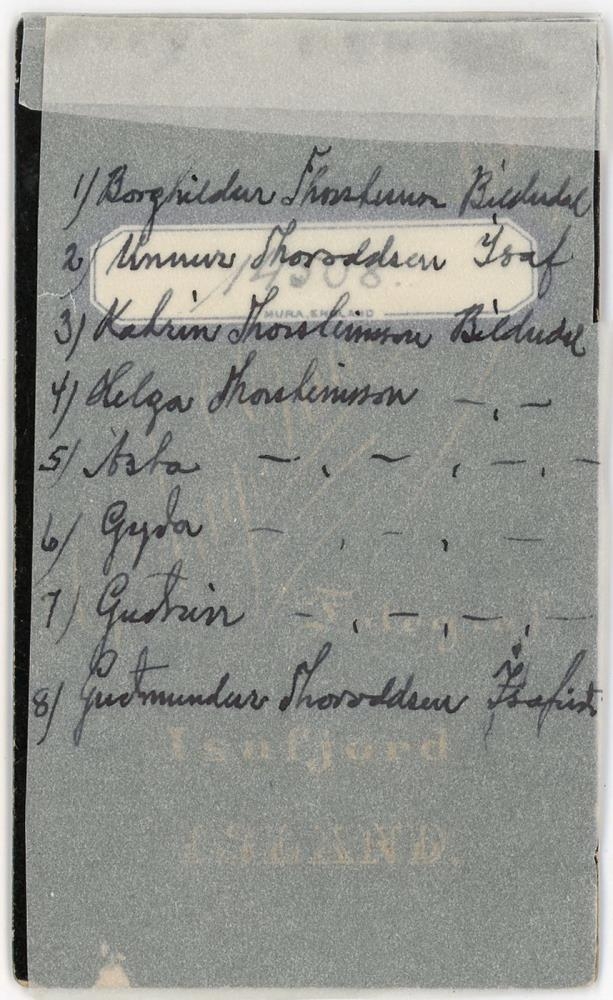 1) Borghildur Thorsteinson Bíldudal
2) Unnur Thoroddsen Ísaf
14308.
MURA, ENGLAND
3) Katrin Thorsteinsson Bíldudal
4) Helga Thorsteinsson — „ —
5) Ásta — „ — „ — „ —
6) Gyða — „ — „ —
7) Guðrún — „ — „ — „ —
8) Guðmundur Thoroddsen Ísafirði
Isafjord